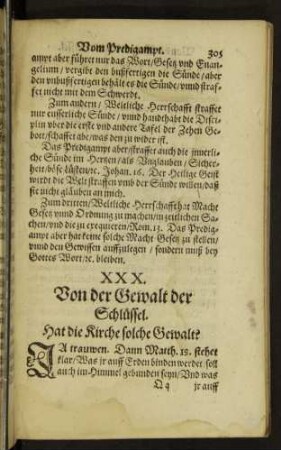 Vom Predigampt. 305
ampt aber führet nur das Wort / Gesetz vnd Euan-
gelium / vergibt den bußfertigen die Sünde / aber
den vnbußfertigen behält es die Sünde / vnnd straf-
fet nicht mit dem Schwerdt.
Zum andern / Weltliche Herrschafft straffet
nur eusserliche Sünde / vnnd handhabt die Disci-
plin vber die erste vnd andere Tafel der Zehen Ge-
bott / schaffet abe / was den zu wider ist.
Das Predigampt aber / straffet auch die innerli-
che Sünde im Hertzen / als Vnglauben / Sicher-
heit / böse lüsten / ꝛc. Johan. 16. Der Heilige Geist
wirdt die Welt straffen vmb der Sünde willen / daß
sie nicht glauben an mich.
Zum dritten / Weltliche Herrschafft hat Macht
Gesetz vnnd Ordnung zu machen / in zeitlichen Sa-
chen / vnd die zu exequiren / Rom. 13. Das Predig-
ampt aber hat keine solche Macht Gesetz zu stellen /
vnnd den Gewissen auffzulegen / sondern muß bey
Gottes Wort / ꝛc. bleiben.
XXX.
Von der Gewalt der
Schlüssel.
Hat die Kirche solche Gewalt?
JA trauwen. Dann Matth. 15. stehet
klar / Was jr auff Erden binden werdet / soll
auch im Himmel gebunden seyn / Vnd was
Qq jr auff